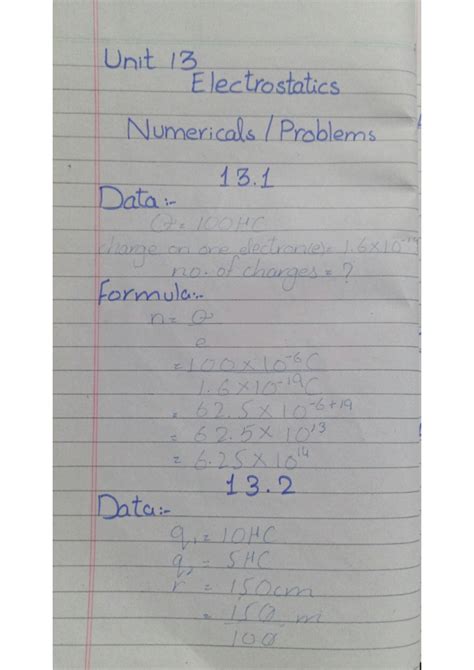 Unit 13
Electrostatics
Numericals / Problems
13.1
Data:-
Q = 100 μC
charge on one electron(e) = 1.6×10⁻¹⁹
no. of charges = ?
Formula:-
n = Q
e
= 100×10⁻⁶C
1.6×10⁻¹⁹C
= 62.5×10⁻⁶⁺¹⁹
= 62.5×10¹³
= 6.25×10¹⁴
13.2
Data:-
q₁ = 10μC
q₂ = 5μC
r = 150cm
= 150 m
100